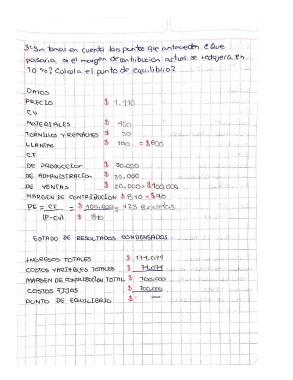 3: Sin tomar en cuenta los puntos que anteceden ¿ Que
pasaria, si el margen de contribución actual se redujera en
10 %? Calcula el punto de equilibrio?
DATOS
PRECIO $
CV
MATERIALES $ 450
TORNILLOS Y REMACHES $ 50
LLANTAS $ 100 = $600
CF
DE PRODUCCION $
DE ADMINISTRACION $
DE VENTAS $ 20,000 = $100,000
MARGEN DE CONTRIBUCION $ 810 = $90
PE = CF = $ 100,000 = 123 Bicicletas
(P-CV) $ 810
ESTADO DE RESULTADOS CONDENSADOS
INGRESOS TOTALES $
COSTOS VARIABLES TOTALES $
MARGEN DE CONTRIBUCION TOTAL $ 100,000
COSTOS FIJOS $ 100,000
PUNTO DE EQUILIBRIO $ —